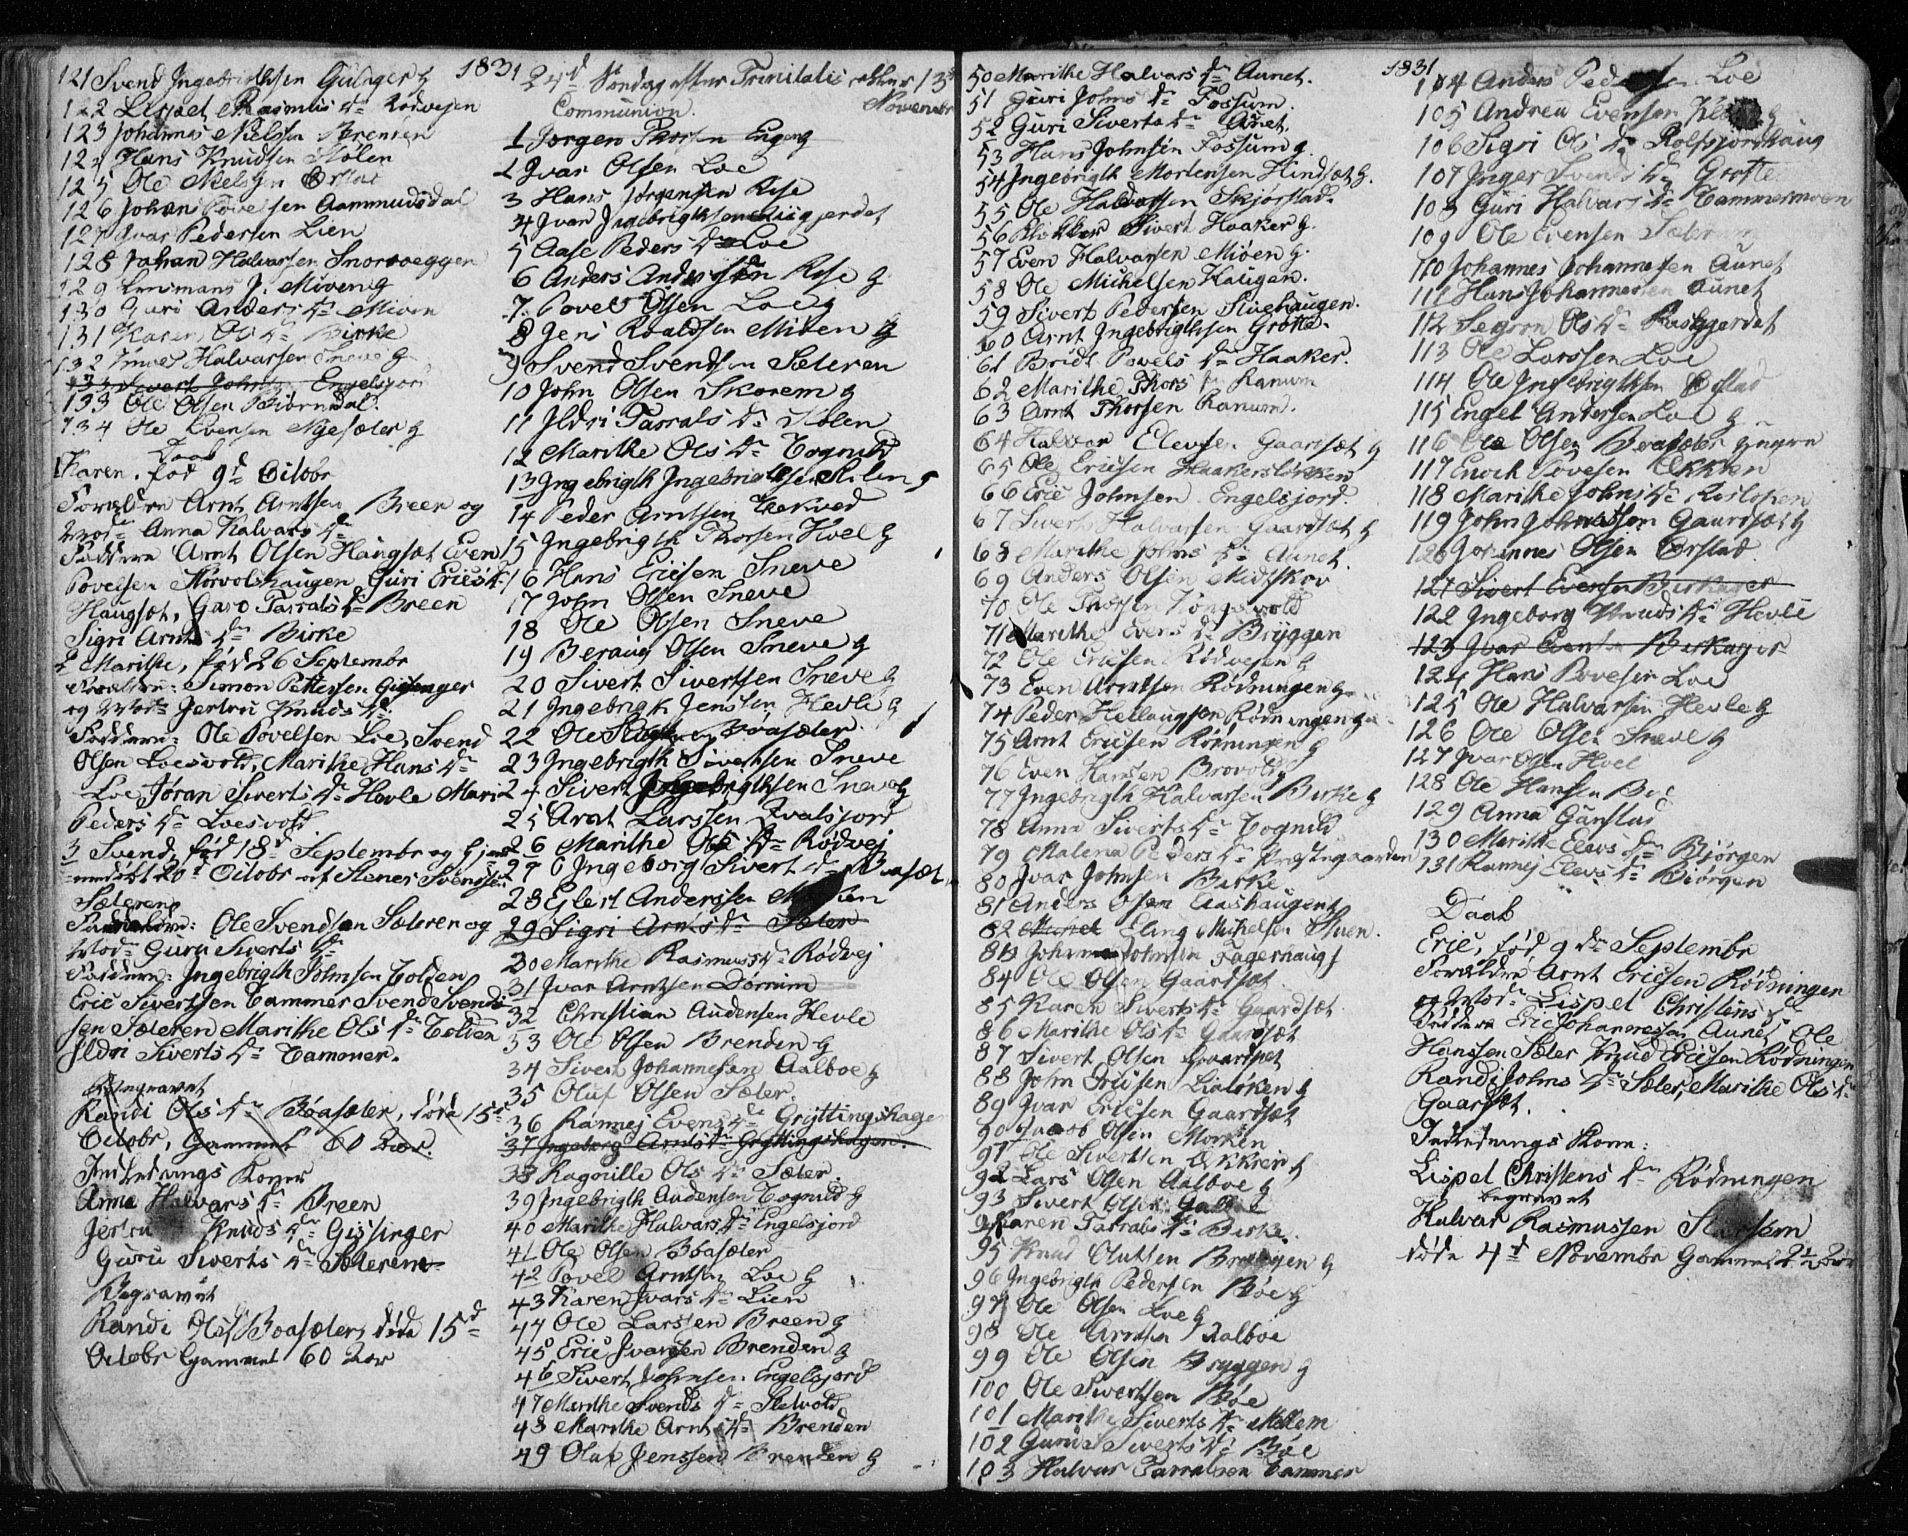 121 Svend Ingebrigthsen Gisinger g
122 Lispet Rasmus Dr Rødvejen
123 Johannes Nielssen Brenden
124 Hans Knudsen Stølen
125 Ole Nielssen Ørstad
126 Johan Povelsen Aammudsdal
127 Ivar Pedersen Lien
128 Johan Halvorsen Snoroveggen
129 J. Mioen g
130 Guri Anders Dr Mioen
131 Karen Ols Dr Birke
132 Halvarsen Sneve g
133 Sivert Johnsen Engelsjord
133 Ole Olsen Biørndal
134 Ole Evensen Nyesæter g
Daab
1 Karen, fød 9d Octobr
Forældre Arnt Arntsen Breen og
Mod: Anna Halvars Dr
Faddere Arnt Olsen Haugsæt Even
Povelsen Norvolshaugen Guri Erics Dr
Haugsæt, Garo Tarrals Dr Breen
Sigri Arnts Dr Birke
2 Marithe, fød 26 Septembr
Forældre: Simon Pettersen Gisinger
og Mod: Jertru Knuds Dr
Faddere: Ole Povelsen Loe, Svend
Olsen Loesvold, Marithe Hans Dr
Loe Jøran Siverts Dr Hevle Mari
Peders Dr Loesvold
3 Svend, fød 18d Septembr og hjem
medøbt 20d Octobr af Stener Svendsen
Sæteren
Forældre: Ole Svendsen Sæteren og
Mod: Guru Siverts Dr
Faddere: Ingebrigth Johnsen Tolden
Eric Sivertsen Tammer Svend Svend
sen Sæteren Marithe Ols Dr Tolden
Ildri Siverts Dr Tammer.
Begravet
Randi Ols Dr Bøasæter, døde 15d
Octobr, Gammel 60 Aar.
Indlednings Koner
Anne Halvars Dr Breen
Jertru Knuds Dr Gissinger
Guru Siverts Dr Sæteren
Begravet
Randi Ols Boasæter, døde 15d
Octobr Gammel 60 Aar
1831
24d Søndag efter Trinitatis eller 13d
Novembr
Communion.
1 Jørgen Thorsen Engen g
2 Ivar Olsen Loe
3 Hans Jørgensen Rise
4 Ivar Ingebrigthsen
5 Aase Peders Dr Loe
6 Anders Andersen Rise g
7 Povel Olsen Loe g
8 Jens Roaldsen Mioen g
9 Svend Svendsen Sæteren
10 John Olsen Skorem g
11 Ildri Tarrals Dr Stølen
12 Marithe Ols Dr Tognild
13 Ingebrigth Ingebrigthsen Stølen g
14 Peder Arntsen
15 Ingebrigth Thorsen Hvel g
16 Hans Ericsen Sneve
17 John Olsen Sneve
18 Ole Olsen Sneve
19 Beraug Olsen Sneve g
20 Sivert Sivertsen Sneve g
21 Ingebrigth Jenssen Hevle g
22 Ole Bøasæter.
23 Ingebrigth Sivertsen Sneve
24 Sivert Ingebrigthsen Sneve g
25 Arnt Larssen Qvalsjord
26 Marithe Ols Dr Rødvej
27 Ingeborg Sivert Dr Boasæt
28 Ejlert Anderssen
29 Sigri Arnts Dr Sæter
30 Marithe Rasmus Dr Rødvej
31 Ivar Arntsen Dørrem
32 Christian Audensen Hevle
33 Ole Olsen Brenden g
34 Sivert Johannesen Aalboe g
35 Oluf Olsen Sæter.
36 Rannej Evens Dr Gryttingshagen
37 Ingeborg Arnts Dr Gryttingshagen
38 Ragnille Ols Dr Sæter
39 Ingebrigth Audensen Tognild g
40 Marithe Halvars Dr Engelsjord
41 Ole Olsen Bøasæter
42 Povel Arntsen Loe g
43 Karen Ivars Dr Lien
44 Ole Larssen Breen g
45 Eric Ivarsen Brenden g
46 Sivert Johnsen Engelsjord
47 Marithe Svends Dr Sletvold
48 Marithe Arnts Dr Brenden
49 Olaf Jenssen Brenden g
50 Marithe Halvars Dr Aunet.
51 Guri Johns Dr Fossum
52 Guri Siverts Dr Aunet.
53 Hans Johnsen Fossum g.
54 Ingebrigth Mortensen Hindsæt g.
55 Ole Haldorsen Skjørstad.
56 Sivert Haaker g.
57 Even Halvarsen Mioen g.
58 Ole Michelsen Haugen.
59 Sivert Pedersen Stuehaugen.
60 Arnt Ingebrigthsen Grøte.
61 Bridt Povels Dr Haaker.
62 Marithe Thors Dr Ranum
63 Arnt Thorsen Ranum.
64 Halvor Elevsen Gaardsæt g
65 Ole Ericsen Haakersløkken
66 Eric Johnsen Engelsjord
67 Sivert Halvarsen Gaardsæt g
68 Marithe Johns Dr Aunet.
69 Anders Olsen Midtskov
70 Ole Thorsen Kongsvold
71 Marithe Evens Dr Bryggen
72 Ole Ericsen Rødvejen g
73 Even Arntsen Rødningen g
74 Peder Hellaugson Rødningen g
75 Arnt Ericsen Rødningen g
76 Even Hanssen Brovold
77 Ingebrigth Halvarsen Birke g
78 Anna Siverts Dr Tognild
79 Malena Peders Dr Præstegaarden
80 Ivar Johnsen Birke
81 Anders Olsen Aashaugen
82 Eling Michelsen Stuen.
83 Johannes Johnsen Fagerhaug
84 Ole Olsen Gaardsæt
85 Karen Siverts Dr Gaardsæt
86 Marithe Ols Dr Gaardsæt
87 Sivert Olsen Gaardsæt
88 John Ericsen Lialøken g
89 Ivar Ericsen Gaardsæt
90 Jacob Olsen Morken
91 Ole Sivertsen Økkren g
92 Lars Olsen Aalboe g
93 Sivert Olsen Aalboe
94 Karen Tarrals Dr Birke
95 Knud Olufsen Bryggen g
96 Ingebrigth Pedersen Bøe g
97 Ole Olsen Loe g
98 Ole Arntsen Aalboe
99 Ole Olsen Bryggen g
100 Ole Sivertsen Bøe
101 Marithe Siverts Dr Mellem
102 Guru Siverts Dr Bøe
103 Halvar Tarralsen Tammer
1831
104 Anders Pedersen Loe
105 Andrea Evensen
106 Sigri Ols Dr Rolfsjordhaug
107 Inger Svends Dr Grøte
108 Guri Halvars Dr Tammermoen
109 Ole Evensen Sæteren
110 Johannes Johannesen Aunet
111 Hans Johannessen Aunet
112 Segrou Ols Dr Risgjerdet
113 Ole Larssen Loe
114 Ole Ingebrigthsen Ørstad
115 Engel Andersen Loe g
116 Ole Olsen Boasæter yngre
117 Enoch Povelsen Økkren
118 Marithe Johns Dr Rislopen
119 John Johnssøn Gaardsæt g
120 Johannes Olsen Ørstad
121 Sivert Evensen Birkager
122 Ingeborg Knuds Dr Hevle
123 Ivar Birkager
124 Hans Povelsen Loe
125 Ole Halvarsen Hevle g
126 Ole Olsen Sneve g
127 Ivar Olsen Hvel
128 Ole Hansen Bøe
129 Anna Gunstad
130 Marithe Elevs Dr Bjørgen
131 Rannej Elevs Dr Biørgen
Daab
Eric, fød 9de Septembr
Forældre Arnt Ericsen Rødningen
og Mod: Lispet Christens Dr
Faddere Eric Johannessen Aune, Ole
Hanssen Sæter Knud Ericsen Rødningen
Randi Johns Dr Sæter, Marithe Ols Dr
Gaardsæt.
Indlednings Kone:
Lispet Christens Dr Rødningen
begravet
Halvar Rasmussen
døde 4d Novembr Gammel 2½ Aar